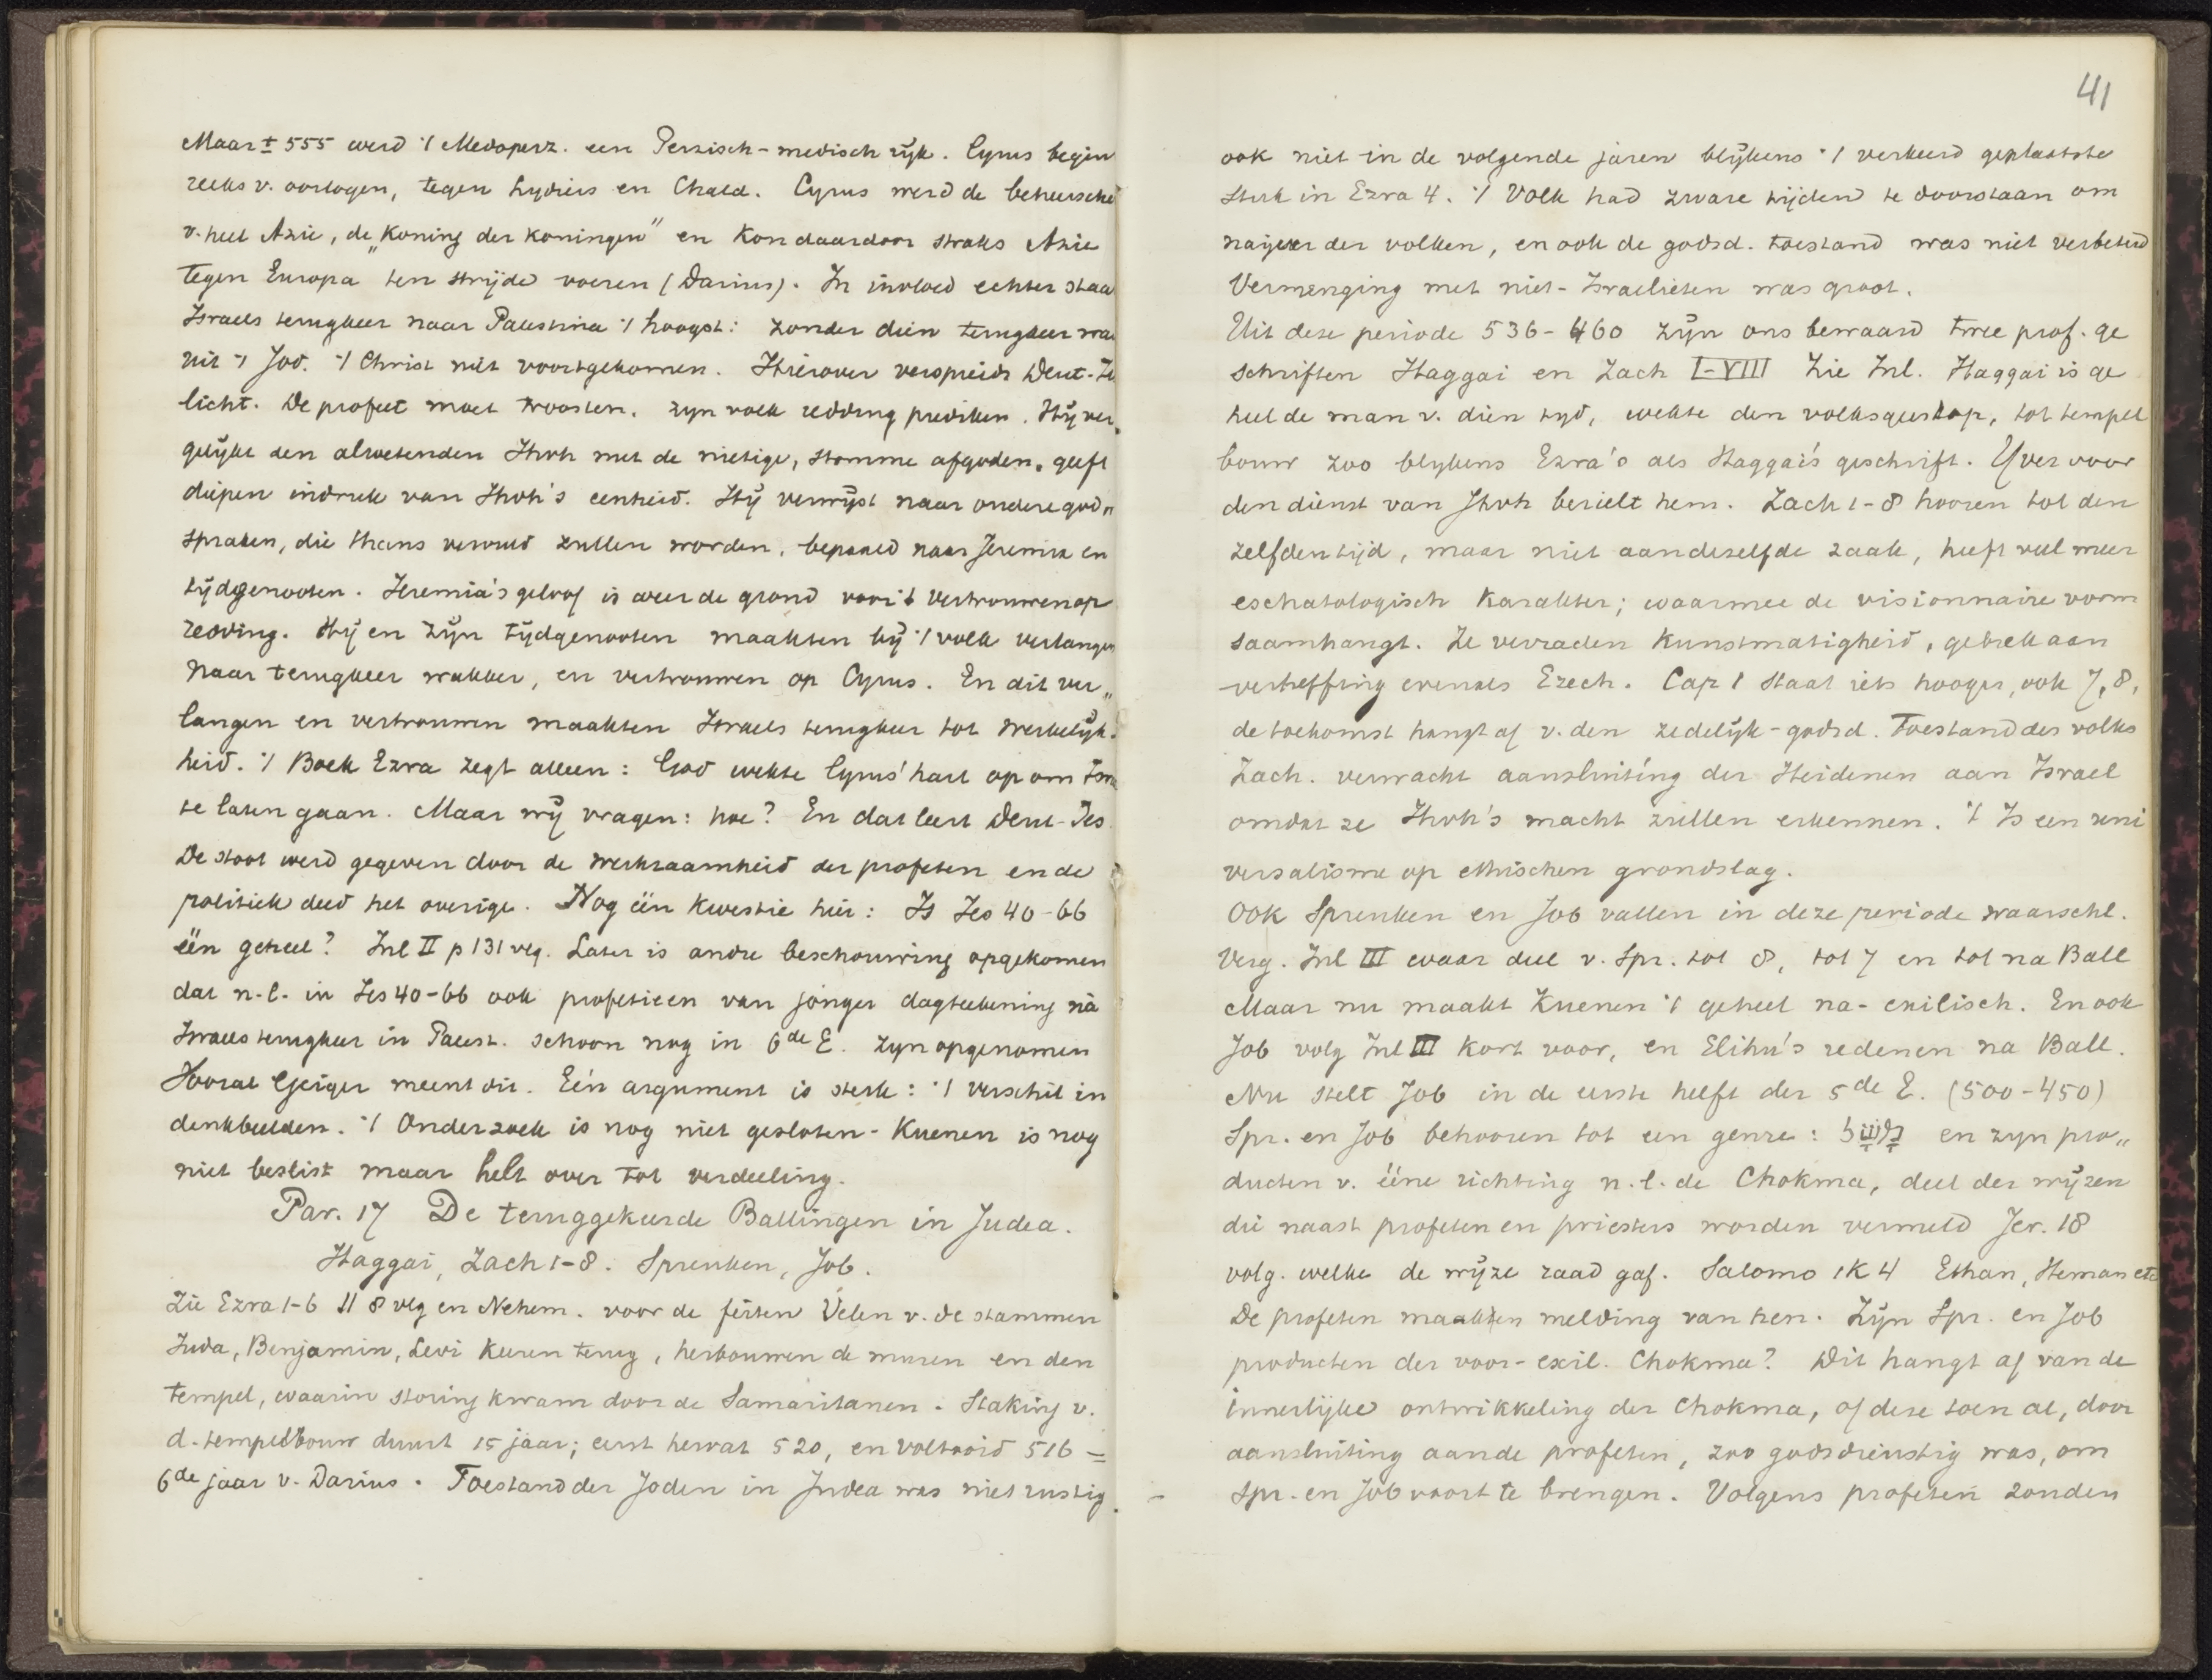 Maar ± 555 werd 't Medoperz. een Perzisch-medisch rijk. Cyrus begin
reeks v. oorlogen, tegen Lydiers en Chald. Cyrus werd de beheersche
v. heel Azie, de „Koning der Koningen" en Kon daardoor straks Azie
tegen Europa ten strijde voeren (Darius). In invloed echter staa
Israels terugkeer naar Palestina 't hoogst: zonder dien terugkeer wa
uit 't Jod. 't Christ niet voortgekomen. Hierover verspreidt Deut-Je
licht. De profeet moet troosten. zyn volk redding prediken. Hij ver„
gelykt den alwetenden Jhvh met de nietige, stomme afgoden. geeft
diepen indruk van Jhvh's eenheid. Hij verwijst naar ondere god„
spraken, die thans vervuld zullen worden, bepaald naar Jeremia en
tijdgenooten. Jeremia's geloof is weer de grond voor 't vertrouwen op
redding. Hij en zijn tijdgenooten maakten bij 't volk verlangen
naar terugkeer wakker, en vertrouwen op Cyrus. En dit ver„
langen en vertrouwen maakten Israels terugkeer tot werkelijk.
heid. 't Boek Ezra zegt alleen: God wekte Cyrus' hart op om Isra
te laten gaan. Maar wij vragen: hoe? En dat leert Deut-Jes.
De stoot werd gegeven door de werkzaamheid der profeten en de
politiek deed het overige. Nog één kwestie hier: Is Jes 40-66
één geheel? Inl II p 131 vlg. Later is andre beschouwing opgekomen
dat n.l. in Jes 40-66 ook profetieen van jonger dagteekening nà
Israels terugkeer in Palest. schoon nog in 6de E. zyn opgenomen
Vooral Geiger meent dit. Eén argument is sterk: 't verschil in
denkbeelden. 't Onderzoek is nog niet gesloten - Kuenen is nog
niet beslist maar helt over tot verdeeling.
Par. 17 De teruggekeerde Ballingen in Judea.
Haggai, Zach 1-8. Spreuken, Job.
Zie Ezra 1-6 II 8 vlg en Nehem. voor de feiten Velen v. de stammen
Juda, Benjamin, Levi keeren terug, herbouwen de muren en den
tempel, waarin storing kwam door de Samaritanen. Staking v.
d. tempelbouw duurt 15 jaar; eerst hervat 520, en voltooid 516 =
6de jaar v. Darius. Toestand der Joden in Judea was niet rustig.
41
ook niet in de volgende jaren blijkens 't verkeerd geplaatste
stuk in Ezra 4. 't Volk had zware tijden te doorstaan om
naijver der volken, en ook de godsd. toestand was niet verbeterd
Vermenging met niet-Israelieten was groot.
Uit deze periode 536-460 zijn ons bewaard twee prof. ge
schriften Haggai en Zach I-VIII Zie Inl. Haggai is ge
heel de man v. dien tyd, wekte den volksgeest op, tot tempel
bouw zoo blykens Ezra's als Haggai's geschrift. IJver voor
den dienst van Jhvh bezielt hem. Zach 1-8 hooren tot den
zelfden tijd, maar niet aan dezelfde zaak, heeft veel meer
eschatologisch karakter; waarmee de visionnaire vorm
saamhangt. Ze verraden kunstmatigheid, gebrek aan
verheffing evenals Ezech. Cap 1 staat iets hooger, ook 7, 8,
de toekomst hangt af v. den zedelijk-godsd. Toestand des volks
Zach. verwacht aansluiting der Heidenen aan Israel
omdat ze Jhvh's macht zullen erkennen. 't Is een uni
versalisme op ethischen grondslag.
Ook Spreuken en Job vallen in deze periode waarschl.
Verg. Inl III waar deel v. Spr. tot 8, tot 7 en tot na Ball
Maar nu maakt Kuenen 't geheel na-exilisch. En ook
Job volg Inl III kort voor, en Elihu's redenen na Ball.
Nu stelt Job in de eerste helft der 5de E. (500-450)
Spr. en Job behooren tot een genre: en zyn pro„
ducten v. ééne richting n.l. de Chokma, deel der wijzen
die naast profeten en priesters worden vermeld Jer. 18
volg. welke de wijze raad gaf. Salomo 1K 4 Ethan, Heman etc
De profeten maakten melding van hen. Zijn Spr. en Job
producten der voor-exil. Chokma? Dit hangt af van de
innerlijke ontwikkeling der Chokma, of deze toen al, door
aansluiting aan de profeten, zoo godsdienstig was, om
Spr. en Job voort te brengen. Volgens profeten zonden